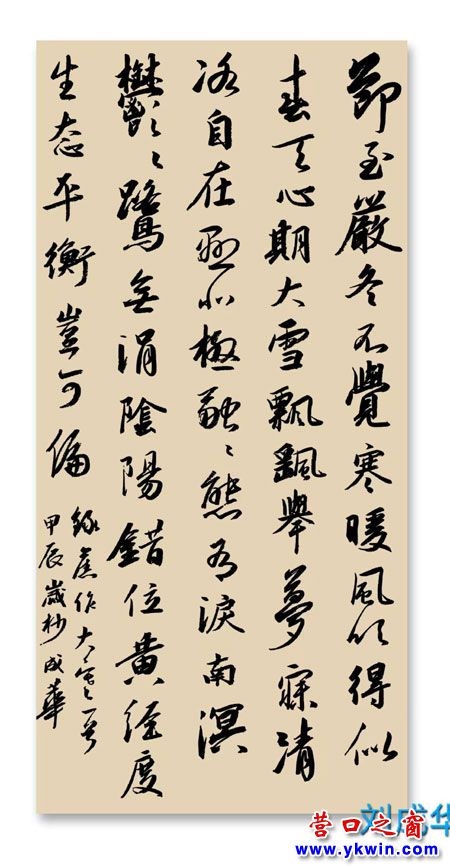 節至嚴冬不覺寒暖風吹得似
春天心期大雪飄飄舉夢寐清
自在懸北極融〻熊有淚南溟
鬱〻鷺無涓陰陽錯位黃經度
生态平衡豈可偏
錄舊作大雪一首
甲辰歲杪成華
刘成华
营口之窗
www.ykwin.com